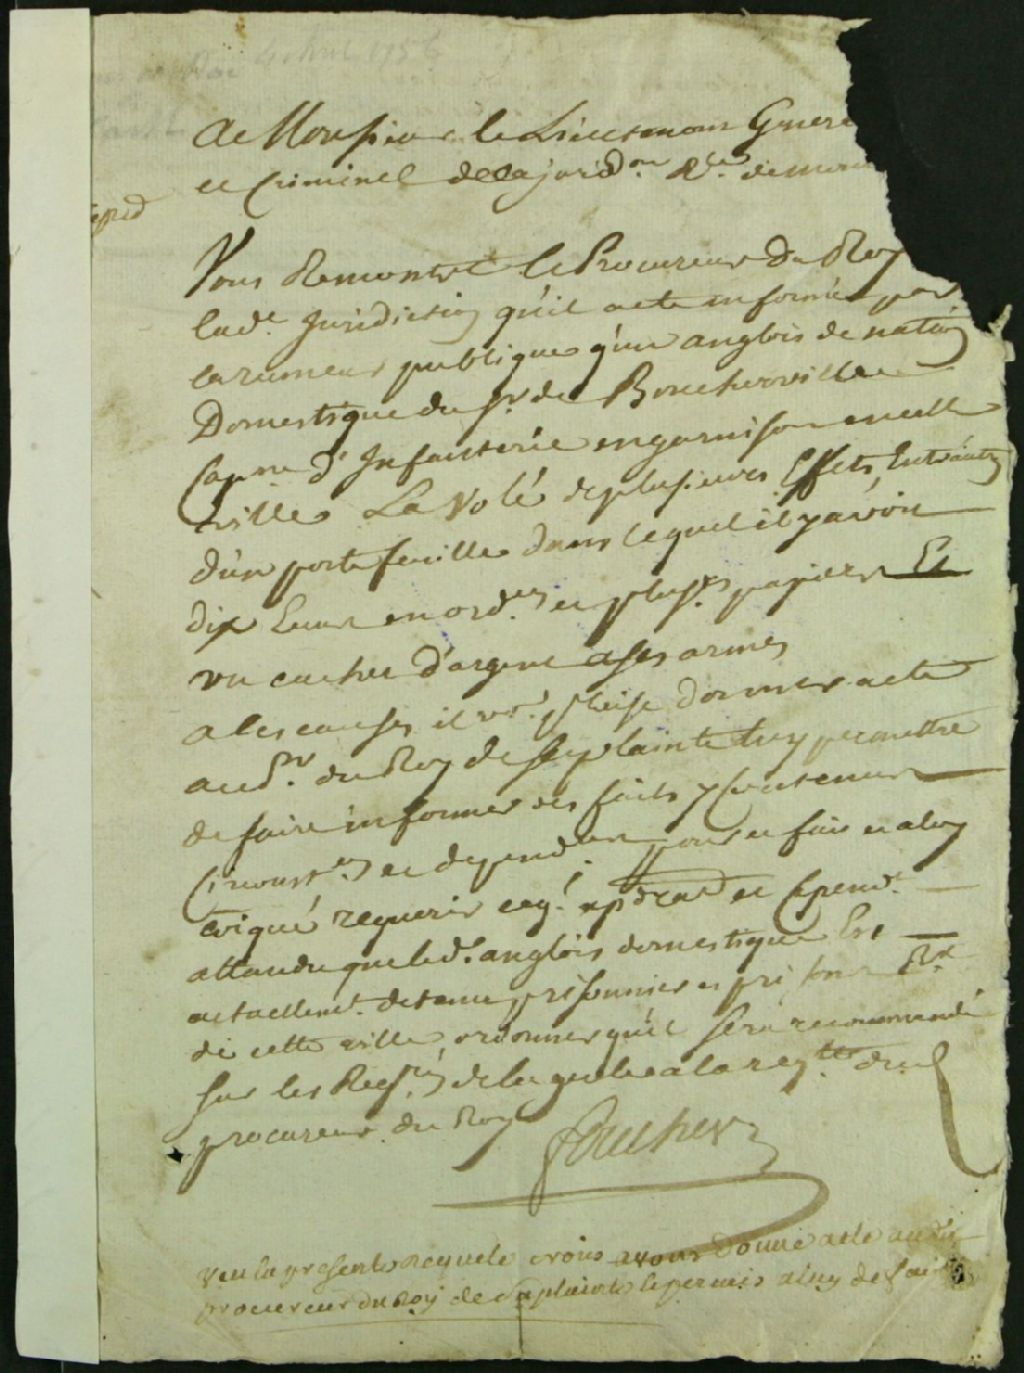 4 Avril 1756
A Monsieur le Lieutenant Genera
et Criminel de la jurisd.on R.le de
Vous Remontre le Procureur du Roy
lad.e Juridiction qu'il a ete informé par
la rumeur publique q'un anglois de nation
Domestique du Sr. de Boucherville
Cap.ne d'Infanterie en garnison en cette
ville La Volé de plusieurs Effets, Entr'autres
d'un porte feuille dans lequel il y avoit
dix Ecus en ord.ces et plus.rs papiers Et
un cachet d'argent a ses armes
a les causes il vo.s plaise donner acte
aud. pr. du Roy de sa plainte luy permettre
de faire informer des faits y contenus
Circonst.ces et dépendan pour ce fait et a luy
coiqué requerir ce q. apdra et Cepend.t
attandu que led. anglois domestique Est
actuellem.t detenu prisonnier es prisons R.x
de cette ville ordonner qu'il sera recommandé
sur les Reg.res de la geole a la req.tte dud.
procureur du Roy
Foucher
Veu la presente requete nous avons donné acte au dit
procureur du Roy de sa plainte le permis a luy de fair